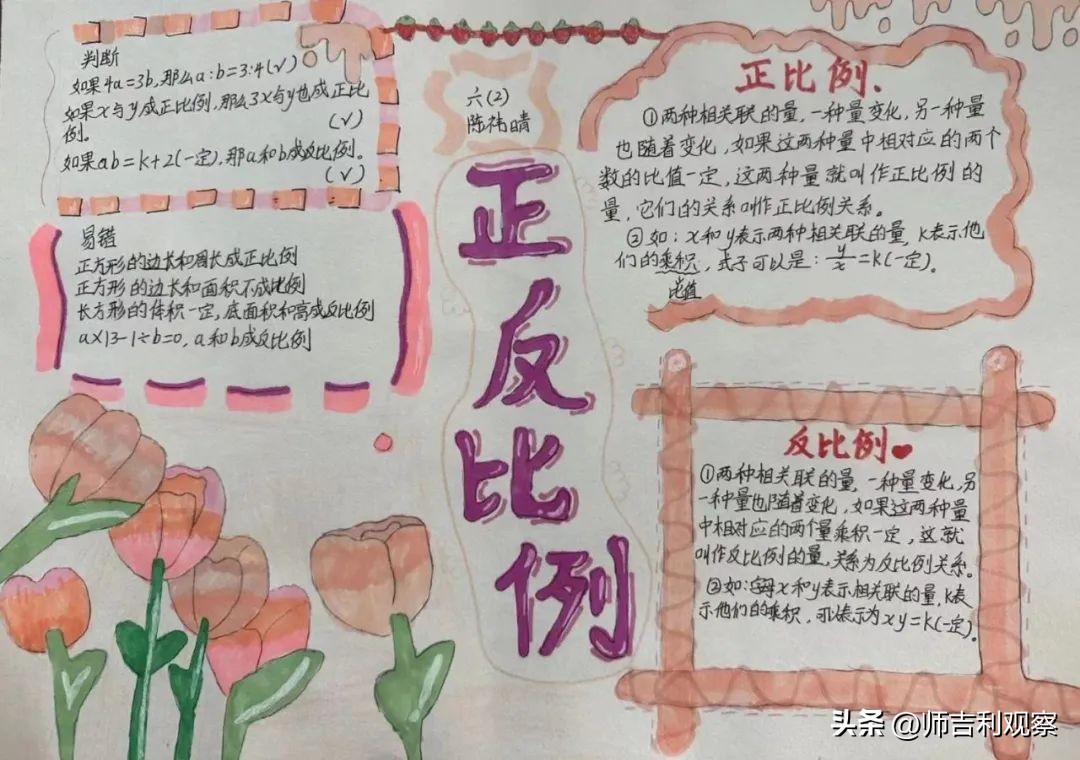 判断
如果4a=3b,那么a:b=3:4(√)
如果x与y成正比例,那么3x与y也成正比
例。
(√)
如果ab=k+2(一定),那a和b成反比例。
(√)
易错
正方形的边长和周长成正比例
正方形的边长和面积不成比例
长方形的体积一定,底面积和高成反比例
a×13-1÷b=0,a和b成反比例
六(2)
陈祎晴
正
反
比
例
正比例.
①两种相关联的量,一种量变化,另一种量
也随着变化,如果这两种量中相对应的两个
数的比值一定,这两种量就叫作正比例的
量,它们的关系叫作正比例关系。
②如:x和y表示两种相关联的量,k表示他
们的乘积,式子可以是:y/x=k(一定)。
比值
反比例
①两种相关联的量,一种量变化,另
一种量也随着变化,如果这两种量
中相对应的两个量乘积一定,这就
叫作反比例的量,关系为反比例关系。
②如:x和y表示相关联的量,k表
示他们的乘积,可以表示为xy=k(一定)。
头条 @师吉利观察